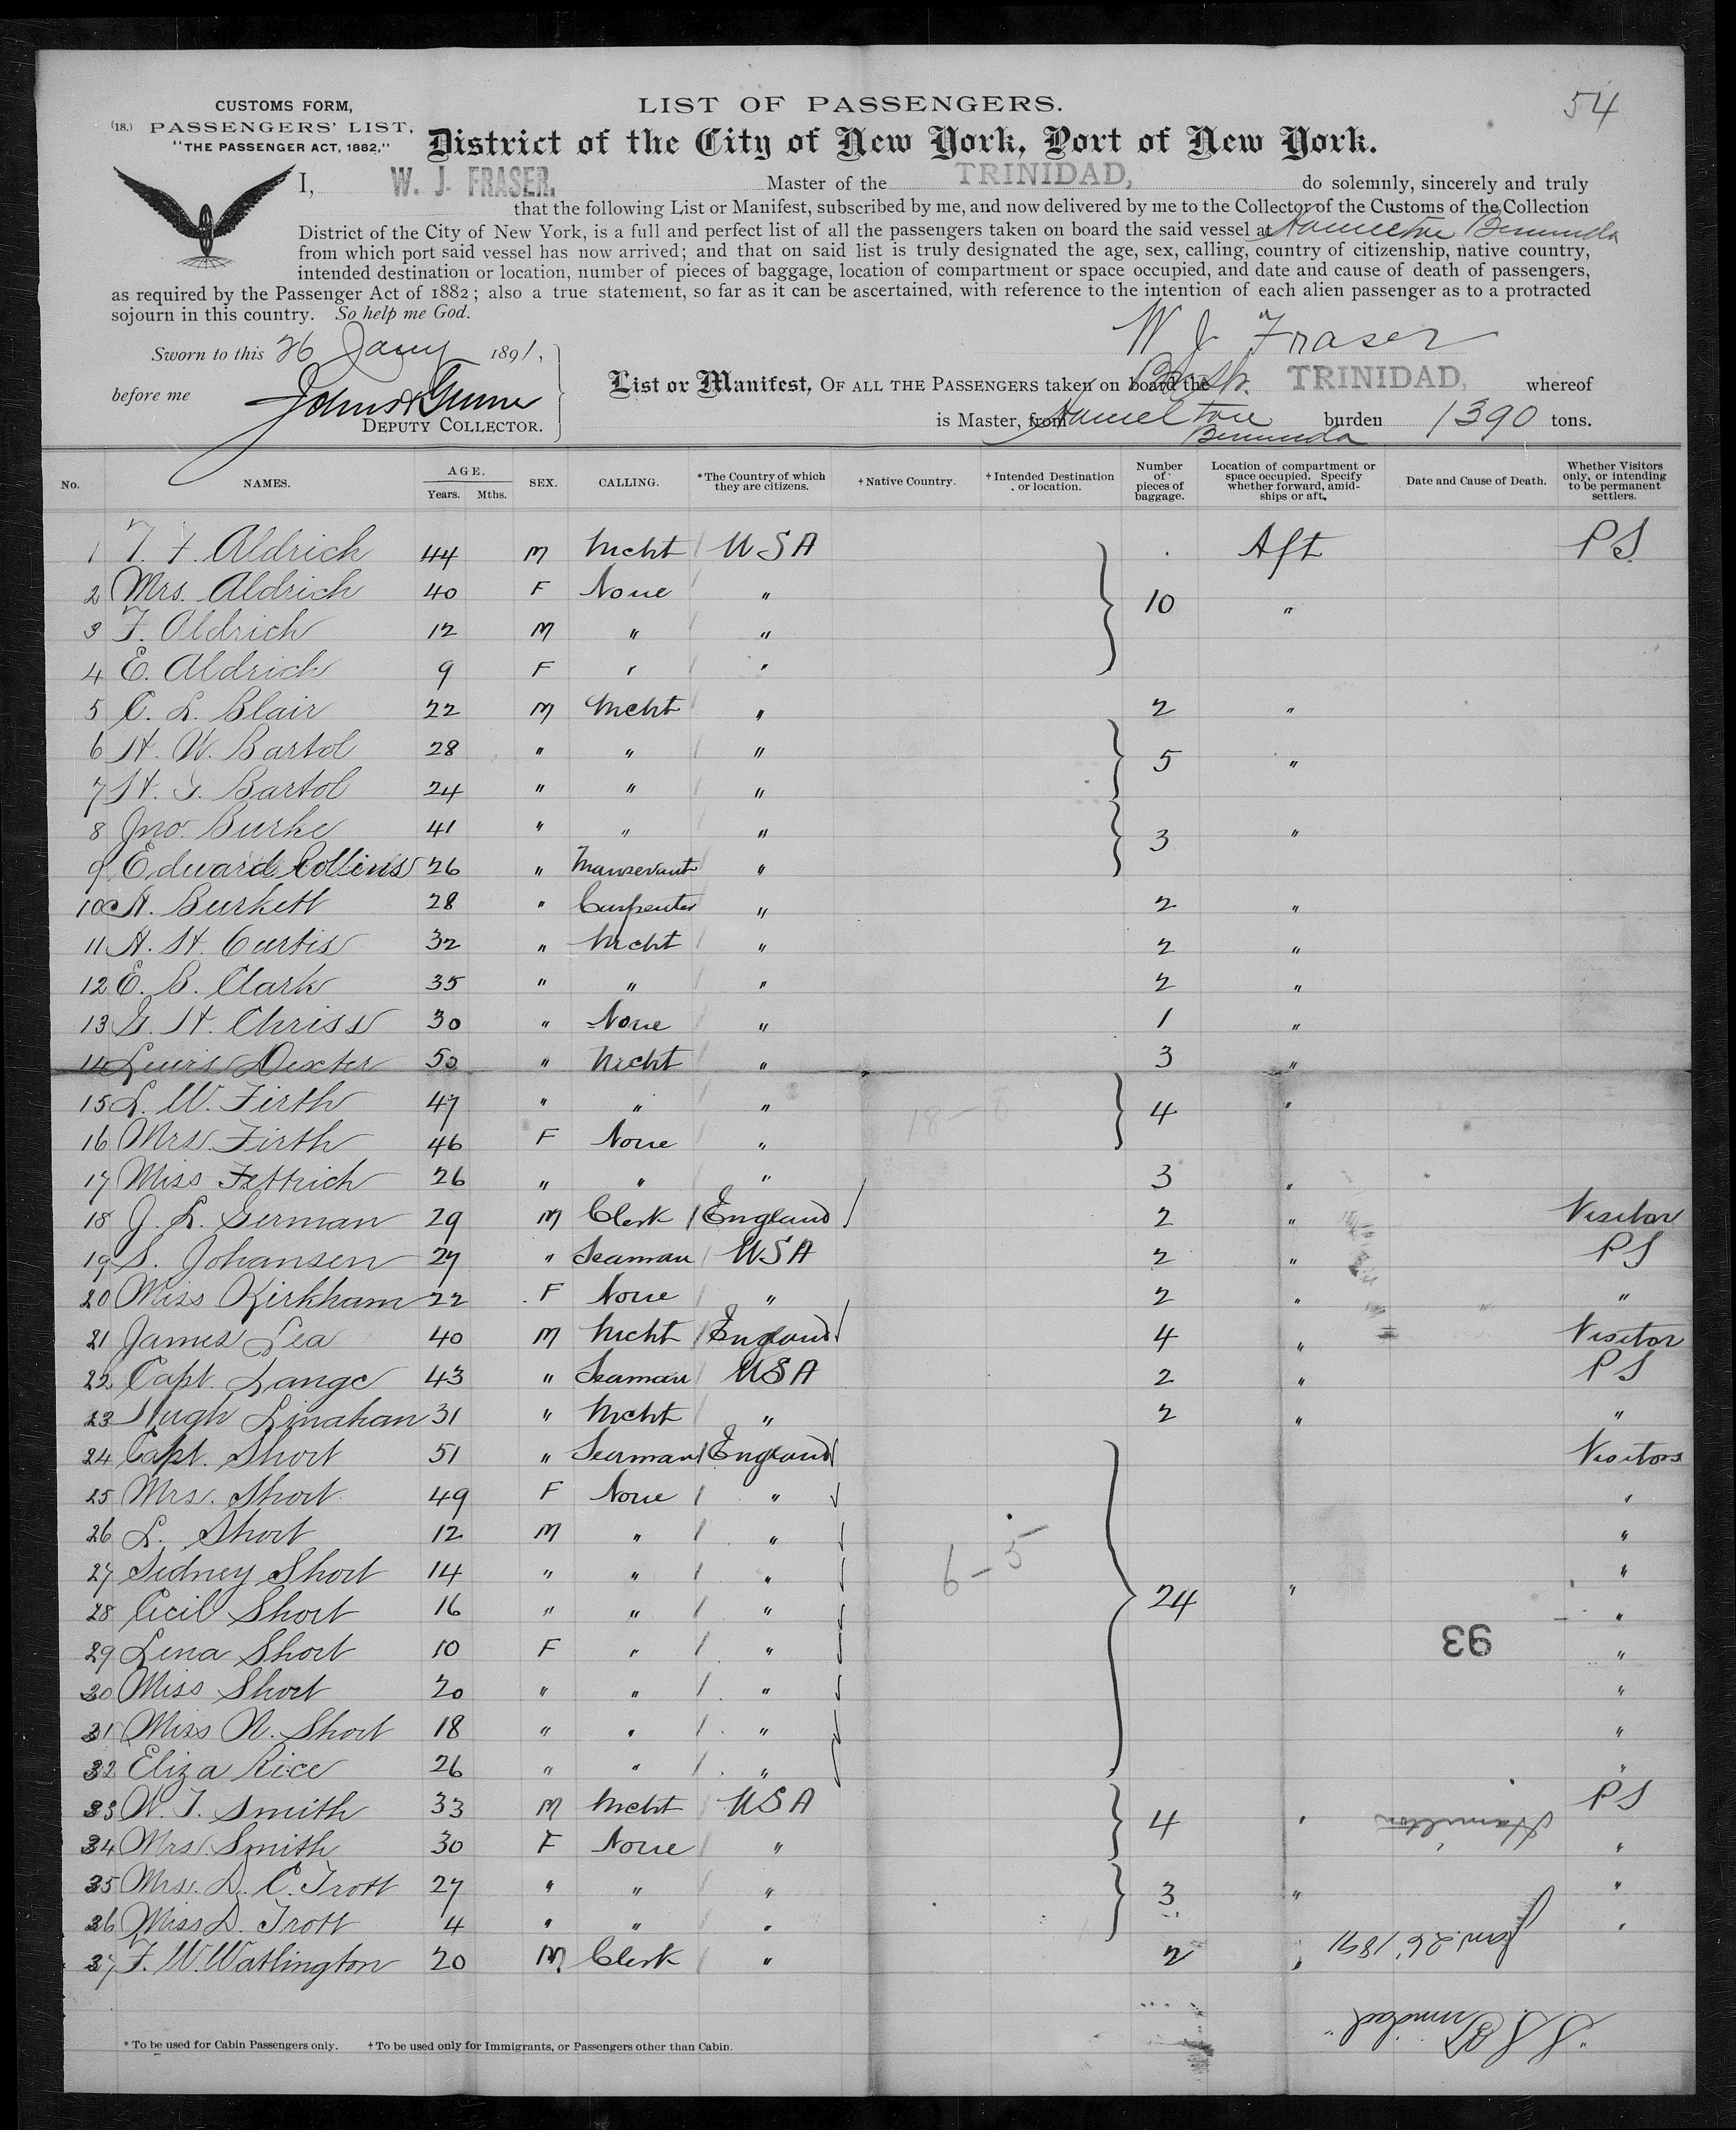 54
CUSTOMS FORM,
(18.) PASSENGERS' LIST,
"THE PASSENGER ACT, 1882,"
LIST OF PASSENGERS.
District of the City of New York, Port of New York.
I, W. J. FRASER, Master of the TRINIDAD, do solemnly, sincerely and truly
that the following List or Manifest, subscribed by me, and now delivered by me to the Collector of the Customs of the Collection
District of the City of New York, is a full and perfect list of all the passengers taken on board the said vessel at Hamilton Bermuda
from which port said vessel has now arrived; and that on said list is truly designated the age, sex, calling, country of citizenship, native country,
intended destination or location, number of pieces of baggage, location of compartment or space occupied, and date and cause of death of passengers,
as required by the Passenger Act of 1882; also a true statement, so far as it can be ascertained, with reference to the intention of each alien passenger as to a protracted
sojourn in this country. So help me God.
W J Fraser
Sworn to this 26 Jany 1891,
before me
DEPUTY COLLECTOR.
List or Manifest, OF ALL THE PASSENGERS taken on board the TRINIDAD, whereof
is Master, from Hamilton Bermuda burden 1390 tons.
No. NAMES. AGE. Years. Mths. SEX. CALLING. *The Country of which they are citizens. †Native Country. †Intended Destination or location. Number of pieces of baggage. Location of compartment or space occupied. Specify whether forward, amidships or aft. Date and Cause of Death. Whether Visitors only, or intending to be permanent settlers.
1 T. F. Aldrich 44 M Mcht USA Aft PS
2 Mrs. Aldrich 40 F None " 10 "
3 F. Aldrich 12 M " "
4 E. Aldrich 9 F " "
5 C. L. Blair 22 M Mcht " 2 "
6 H. W. Bartol 28 " " " 5 "
7 H. G. Bartol 24 " " "
8 Jno. Burke 41 " " " 3 "
9 Edward Collins 26 " Manservant "
10 A. Burkett 28 " Carpenter " 2 "
11 A. H. Curtis 32 " Mcht " 2 "
12 E. B. Clark 35 " " " 2 "
13 G. H. Chriss 30 " None " 1 "
14 Lewis Dexter 50 " Mcht " 3 "
15 L. W. Firth 47 " " " 4 "
16 Mrs. Firth 46 F None "
17 Miss Fettrich 26 " " " 3 "
18 J. L. German 29 M Clerk England 2 " Visitor
19 S. Johansen 27 " Seaman USA 2 " PS
20 Miss Kirkham 22 F None " 2 " "
21 James Lea 40 M Mcht England 4 " Visitor
22 Capt. Lange 43 " Seaman USA 2 " PS
23 Hugh Linahan 31 " Mcht " 2 " "
24 Capt. Short 51 " Seaman England Visitors
25 Mrs. Short 49 F None " "
26 L. Short 12 M " " "
27 Sidney Short 14 " " " 6-5 "
28 Cecil Short 16 " " " 24 " "
29 Lena Short 10 F " " 93 "
30 Miss Short 20 " " " "
31 Miss N. Short 18 " " " "
32 Eliza Rice 26 " " " "
33 W. T. Smith 33 M Mcht USA 4 " PS
Hamilton
34 Mrs Smith 30 F None " "
35 Mrs. D. C. Trott 27 " " " 3 " "
36 Miss D. Trott 4 " " " "
Jan. 26. 1891
37 F. W. Watlington 20 M Clerk " 2 "
"S.S. Trinidad"
* To be used for Cabin Passengers only. †To be used only for Immigrants, or Passengers other than Cabin.